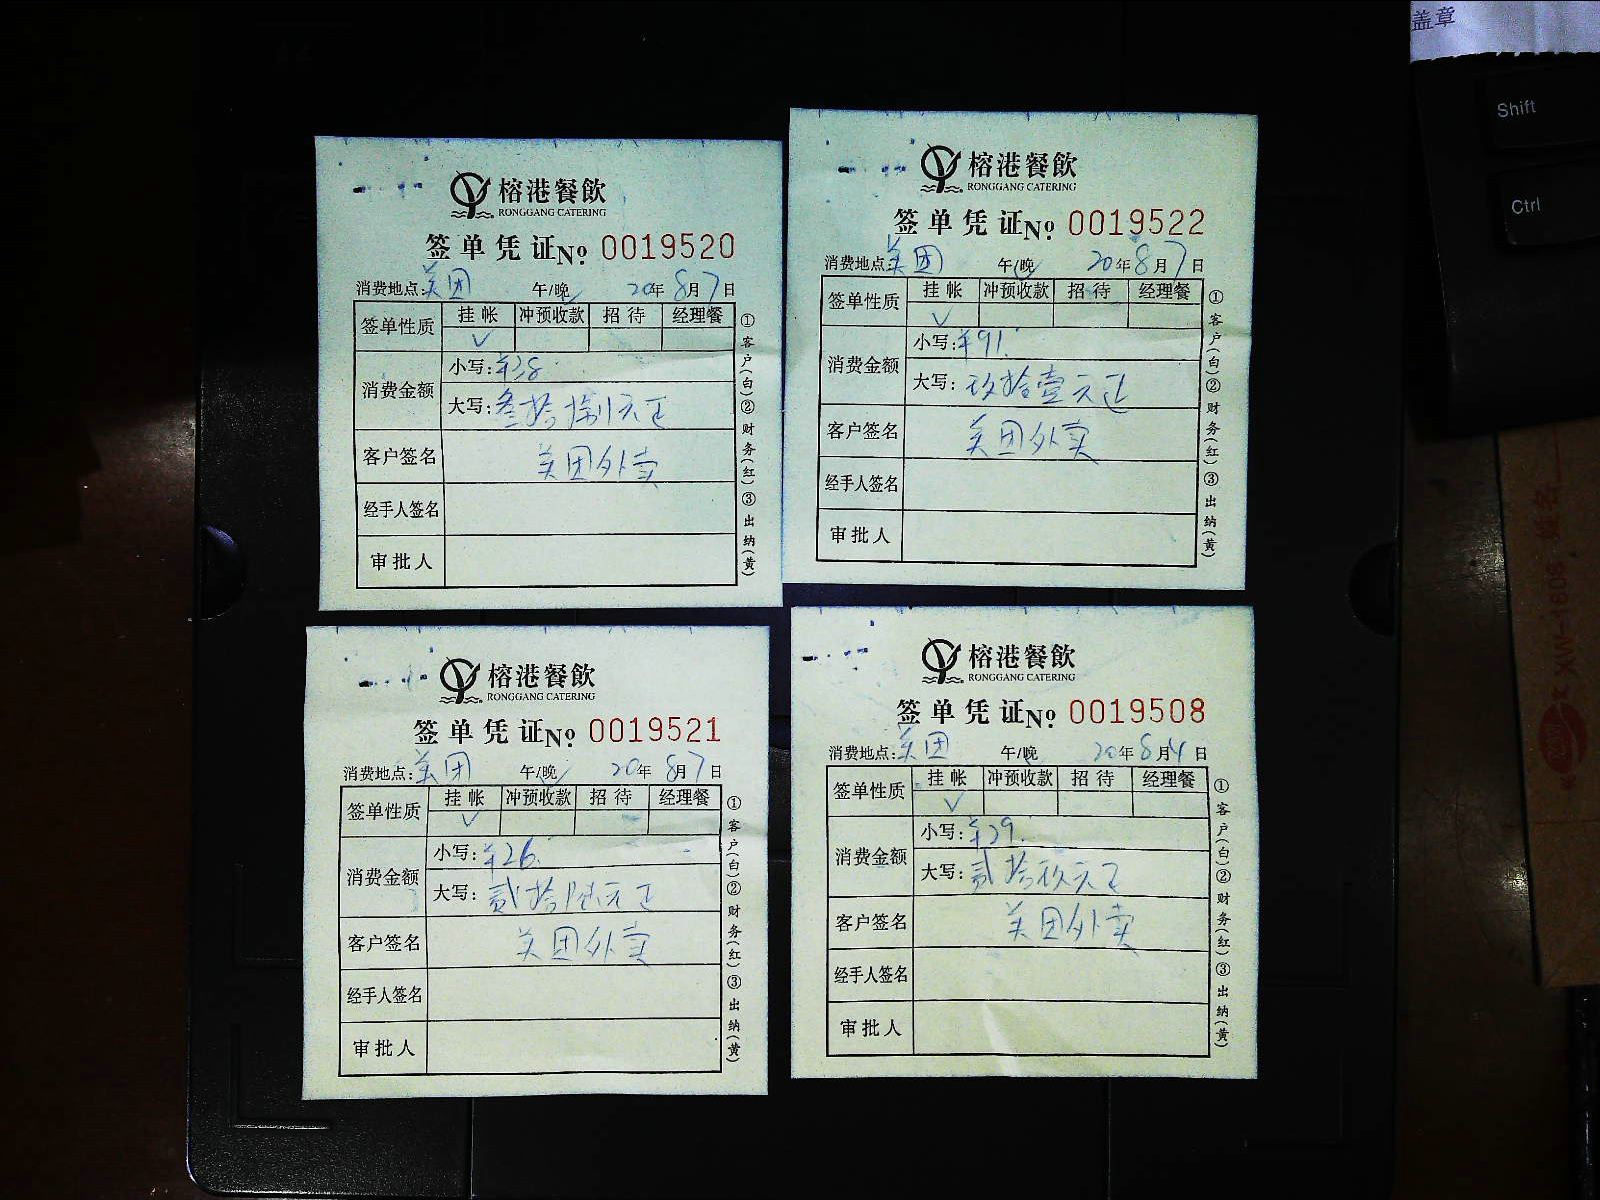 榕港餐飲
RONGGANG CATERING
签单凭证№ 0019520
消费地点:美团 午/晚 20年8月7日
签单性质 挂帐 冲预收款 招待 经理餐
✓
消费金额
小写:¥38
大写:叁拾捌元正
客户签名 美团外卖
经手人签名
审批人
①客户(白)②财务(红)③出纳(黄)
榕港餐飲
RONGGANG CATERING
签单凭证№ 0019522
消费地点:美团 午/晚 20年8月7日
签单性质 挂帐 冲预收款 招待 经理餐
✓
消费金额
小写:¥91.
大写:玖拾壹元正
客户签名 美团外卖
经手人签名
审批人
①客户(白)②财务(红)③出纳(黄)
榕港餐飲
RONGGANG CATERING
签单凭证№ 0019521
消费地点:美团 午/晚 20年8月7日
签单性质 挂帐 冲预收款 招待 经理餐
✓
消费金额
小写:¥26.
大写:贰拾陆元正
客户签名 美团外卖
经手人签名
审批人
①客户(白)②财务(红)③出纳(黄)
榕港餐飲
RONGGANG CATERING
签单凭证№ 0019508
消费地点:美团 午/晚 20年8月4日
签单性质 挂帐 冲预收款 招待 经理餐
✓
消费金额
小写:¥29.
大写:贰拾玖元正
客户签名 美团外卖
经手人签名
审批人
①客户(白)②财务(红)③出纳(黄)
盖章
Shift
Ctrl
XW-1806